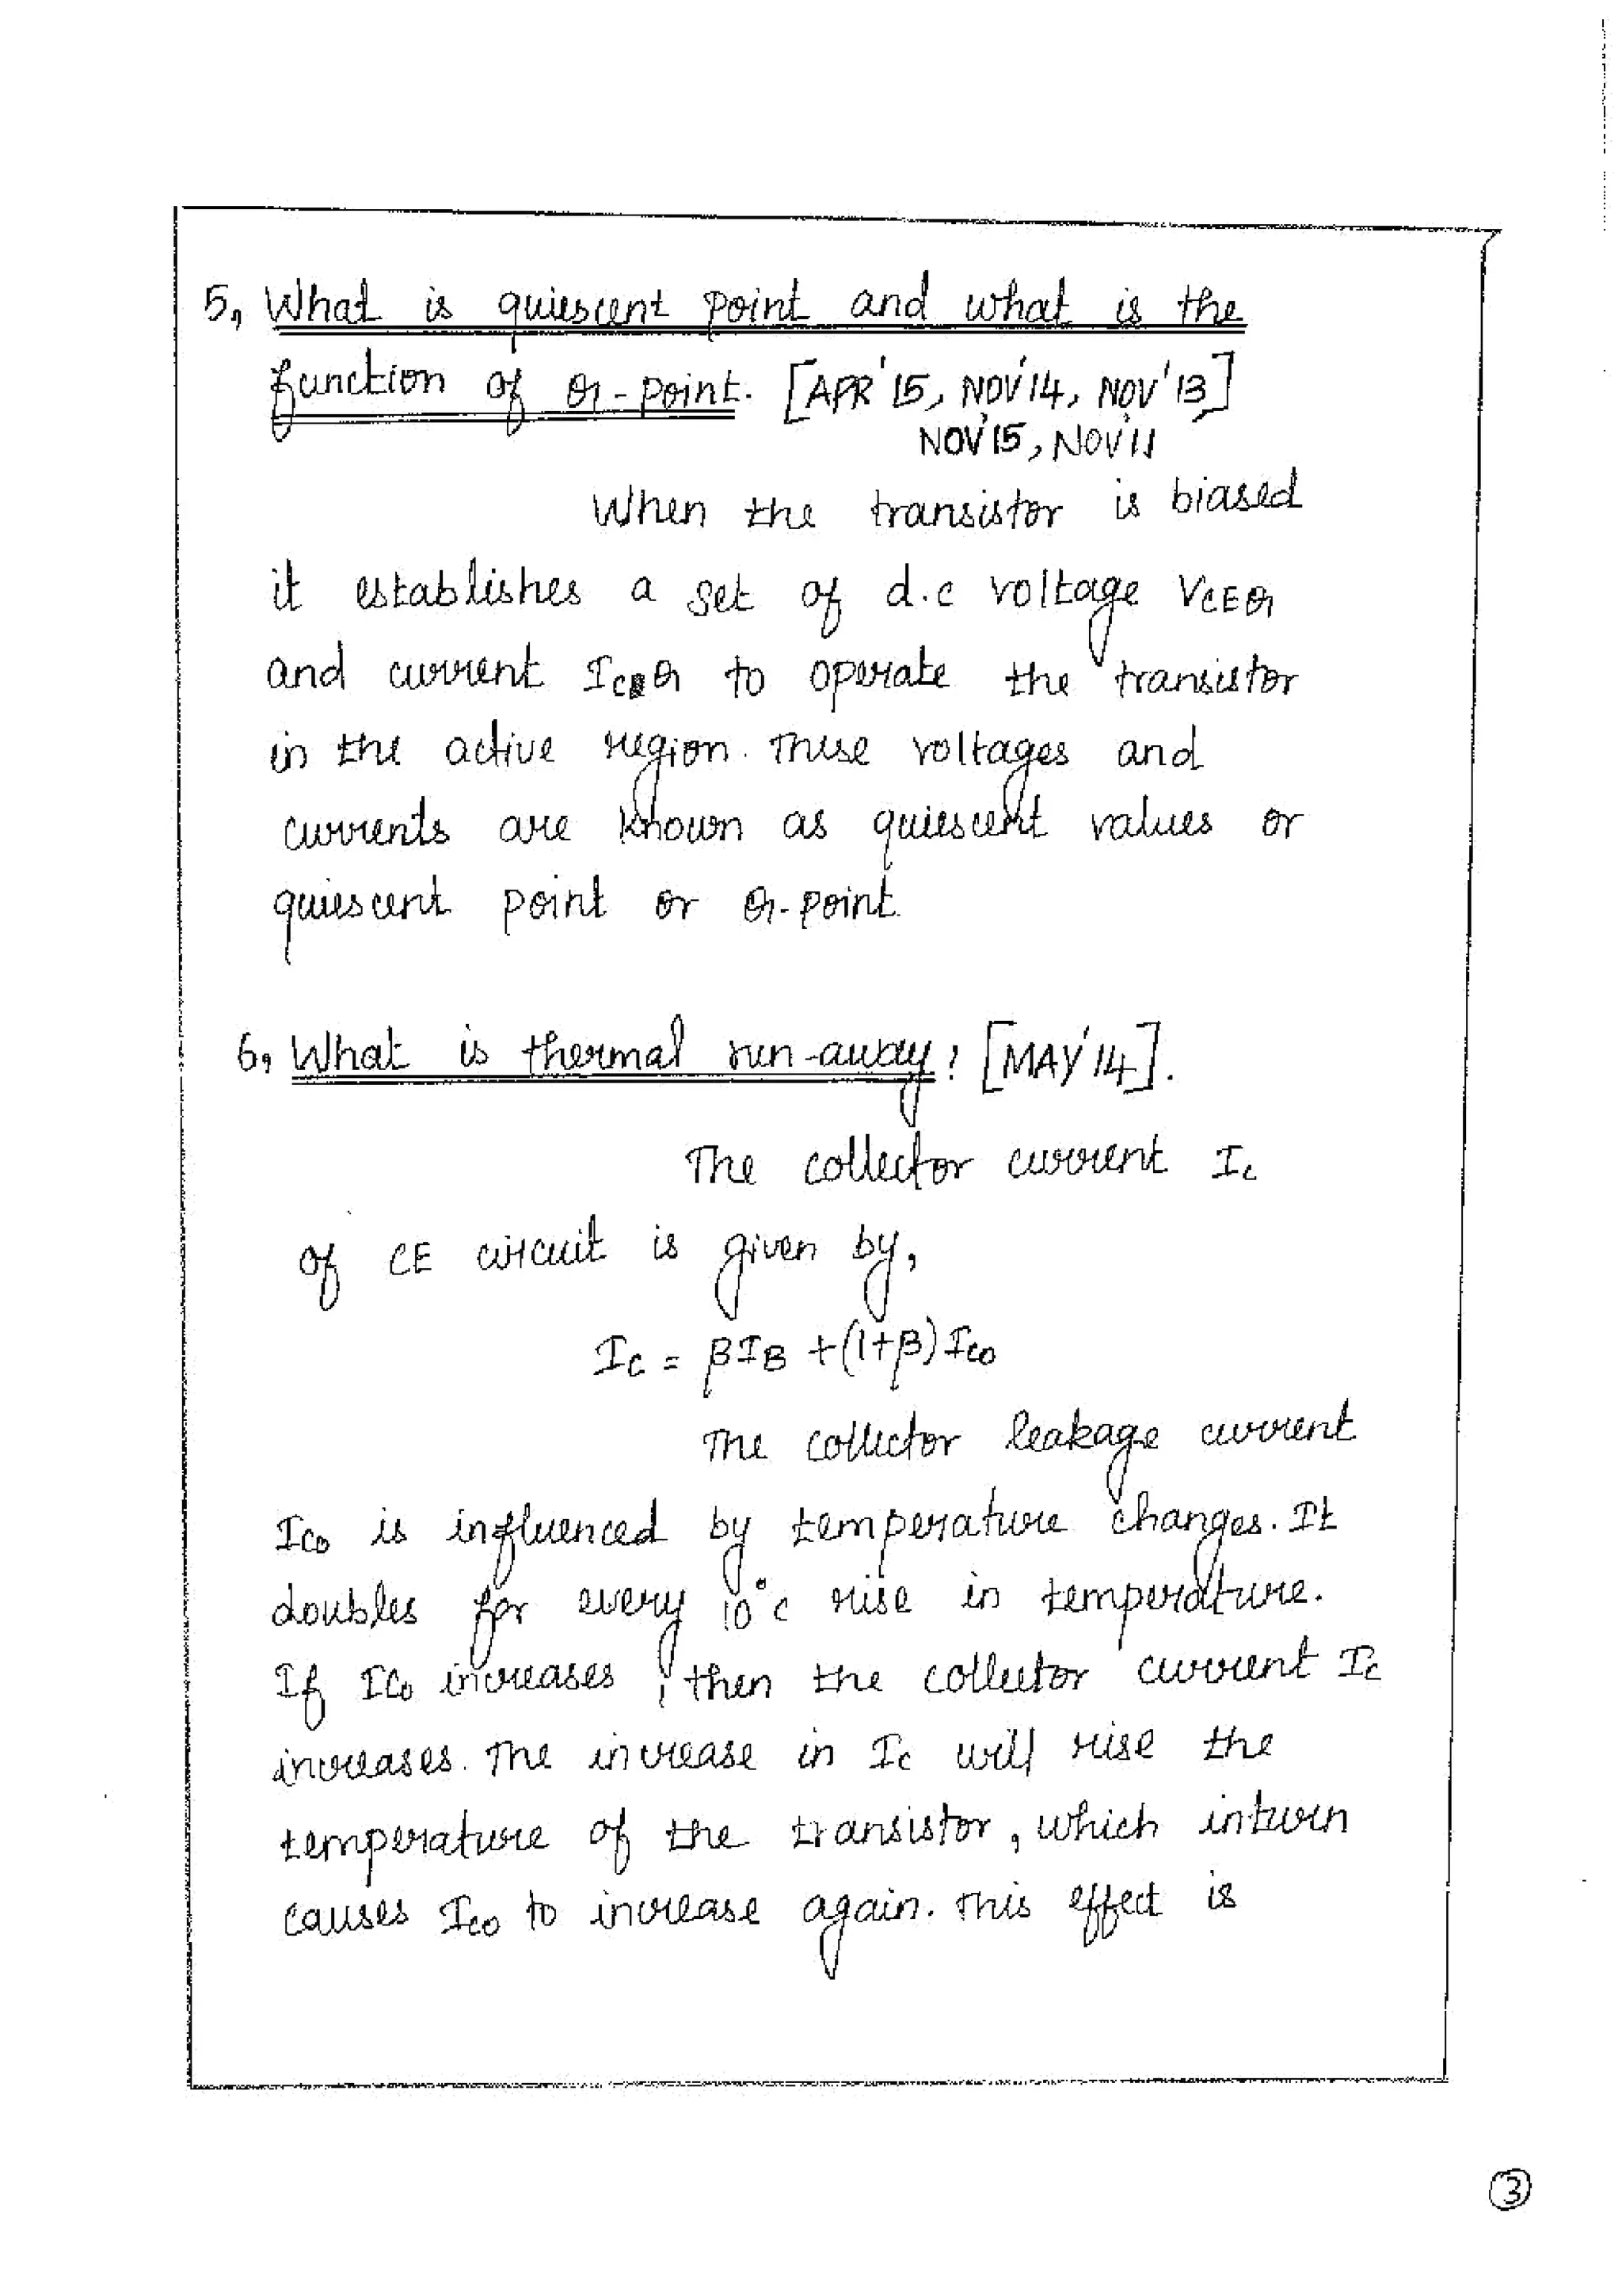 5, What is quiescent point and what is the
function of Q-point. [APR'15, NOV'14, NOV'13]
NOV'15, NOV'11
When the transistor is biased
it establishes a set of d.c voltage VCEQ
and current ICQ to operate the transistor
in the active region. These voltages and
currents are known as quiescent values or
quiescent point or Q-point.
6, What is thermal run-away? [MAY'14].
The collector current Ic
of CE circuit is given by,
IC = βIB + (1+β) Ico
The collector leakage current
Ico is influenced by temperature changes. It
doubles for every 10°c rise in temperature.
If Ico increases, then the collector current Ic
increases. The increase in Ic will rise the
temperature of the transistor, which inturn
causes Ico to increase again. This effect is
3